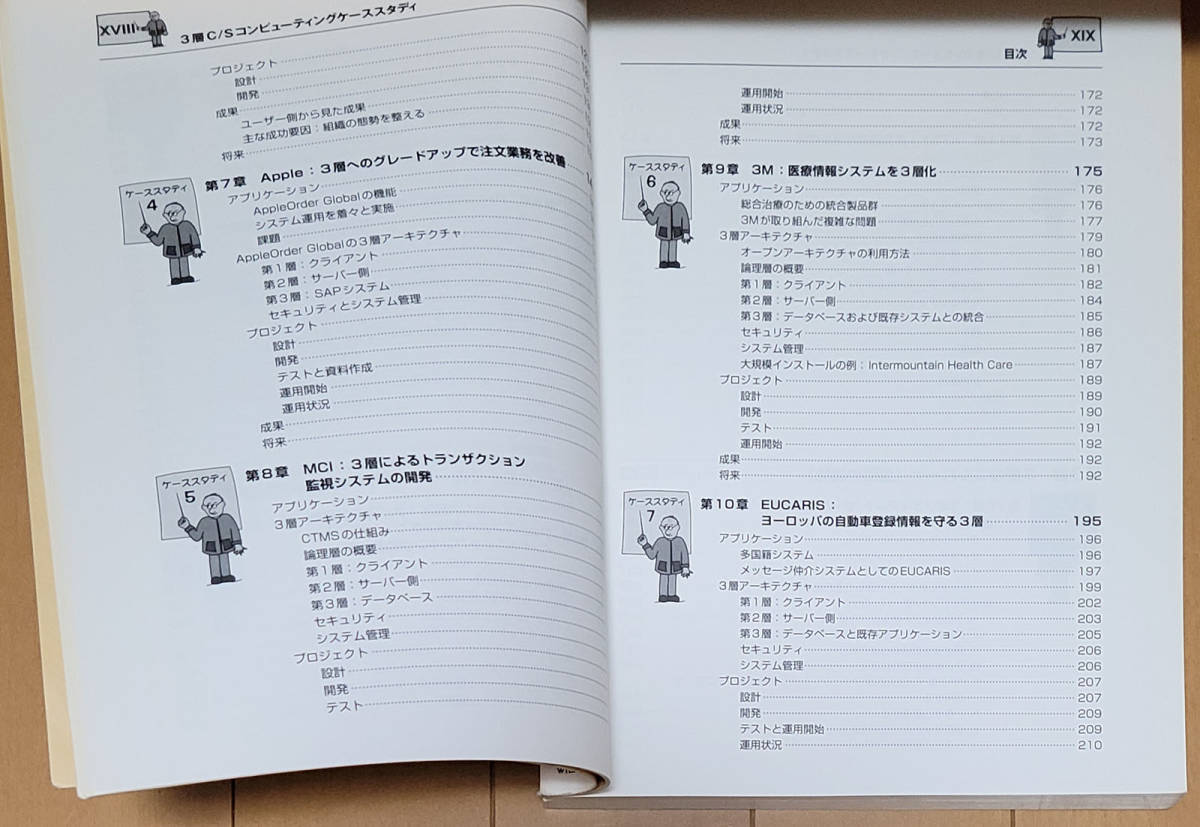 XVIII
3層C/Sコンピューティングケーススタディ
プロジェクト
設計
開発
成果
ユーザー側から見た成果
主な成功要因：組織の態勢を整える
将来
ケーススタディ
4
第7章 Apple：3層へのグレードアップで注文業務を改善
アプリケーション
AppleOrder Globalの機能
システム運用を着々と実施
課題
AppleOrder Globalの3層アーキテクチャ
第1層：クライアント
第2層：サーバー側
第3層：SAPシステム
セキュリティとシステム管理
プロジェクト
設計
開発
テストと資料作成
運用開始
運用状況
成果
将来
ケーススタディ
5
第8章 MCI：3層によるトランザクション
監視システムの開発
アプリケーション
3層アーキテクチャ
CTMSの仕組み
論理層の概要
第1層：クライアント
第2層：サーバー側
第3層：データベース
セキュリティ
システム管理
プロジェクト
設計
開発
テスト
XIX
目次
運用開始 172
運用状況 172
成果 172
将来 173
ケーススタディ
6
第9章 3M：医療情報システムを3層化 175
アプリケーション 176
総合治療のための統合製品群 176
3Mが取り組んだ複雑な問題 177
3層アーキテクチャ 179
オープンアーキテクチャの利用方法 180
論理層の概要 181
第1層：クライアント 182
第2層：サーバー側 184
第3層：データベースおよび既存システムとの統合 185
セキュリティ 186
システム管理 187
大規模インストールの例：Intermountain Health Care 187
プロジェクト 189
設計 189
開発 190
テスト 191
運用開始 192
成果 192
将来 192
ケーススタディ
7
第10章 EUCARIS：
ヨーロッパの自動車登録情報を守る3層 195
アプリケーション 196
多国籍システム 196
メッセージ仲介システムとしてのEUCARIS 197
3層アーキテクチャ 199
第1層：クライアント 202
第2層：サーバー側 203
第3層：データベースと既存アプリケーション 205
セキュリティ 206
システム管理 206
プロジェクト 207
設計 207
開発 209
テストと運用開始 209
運用状況 210